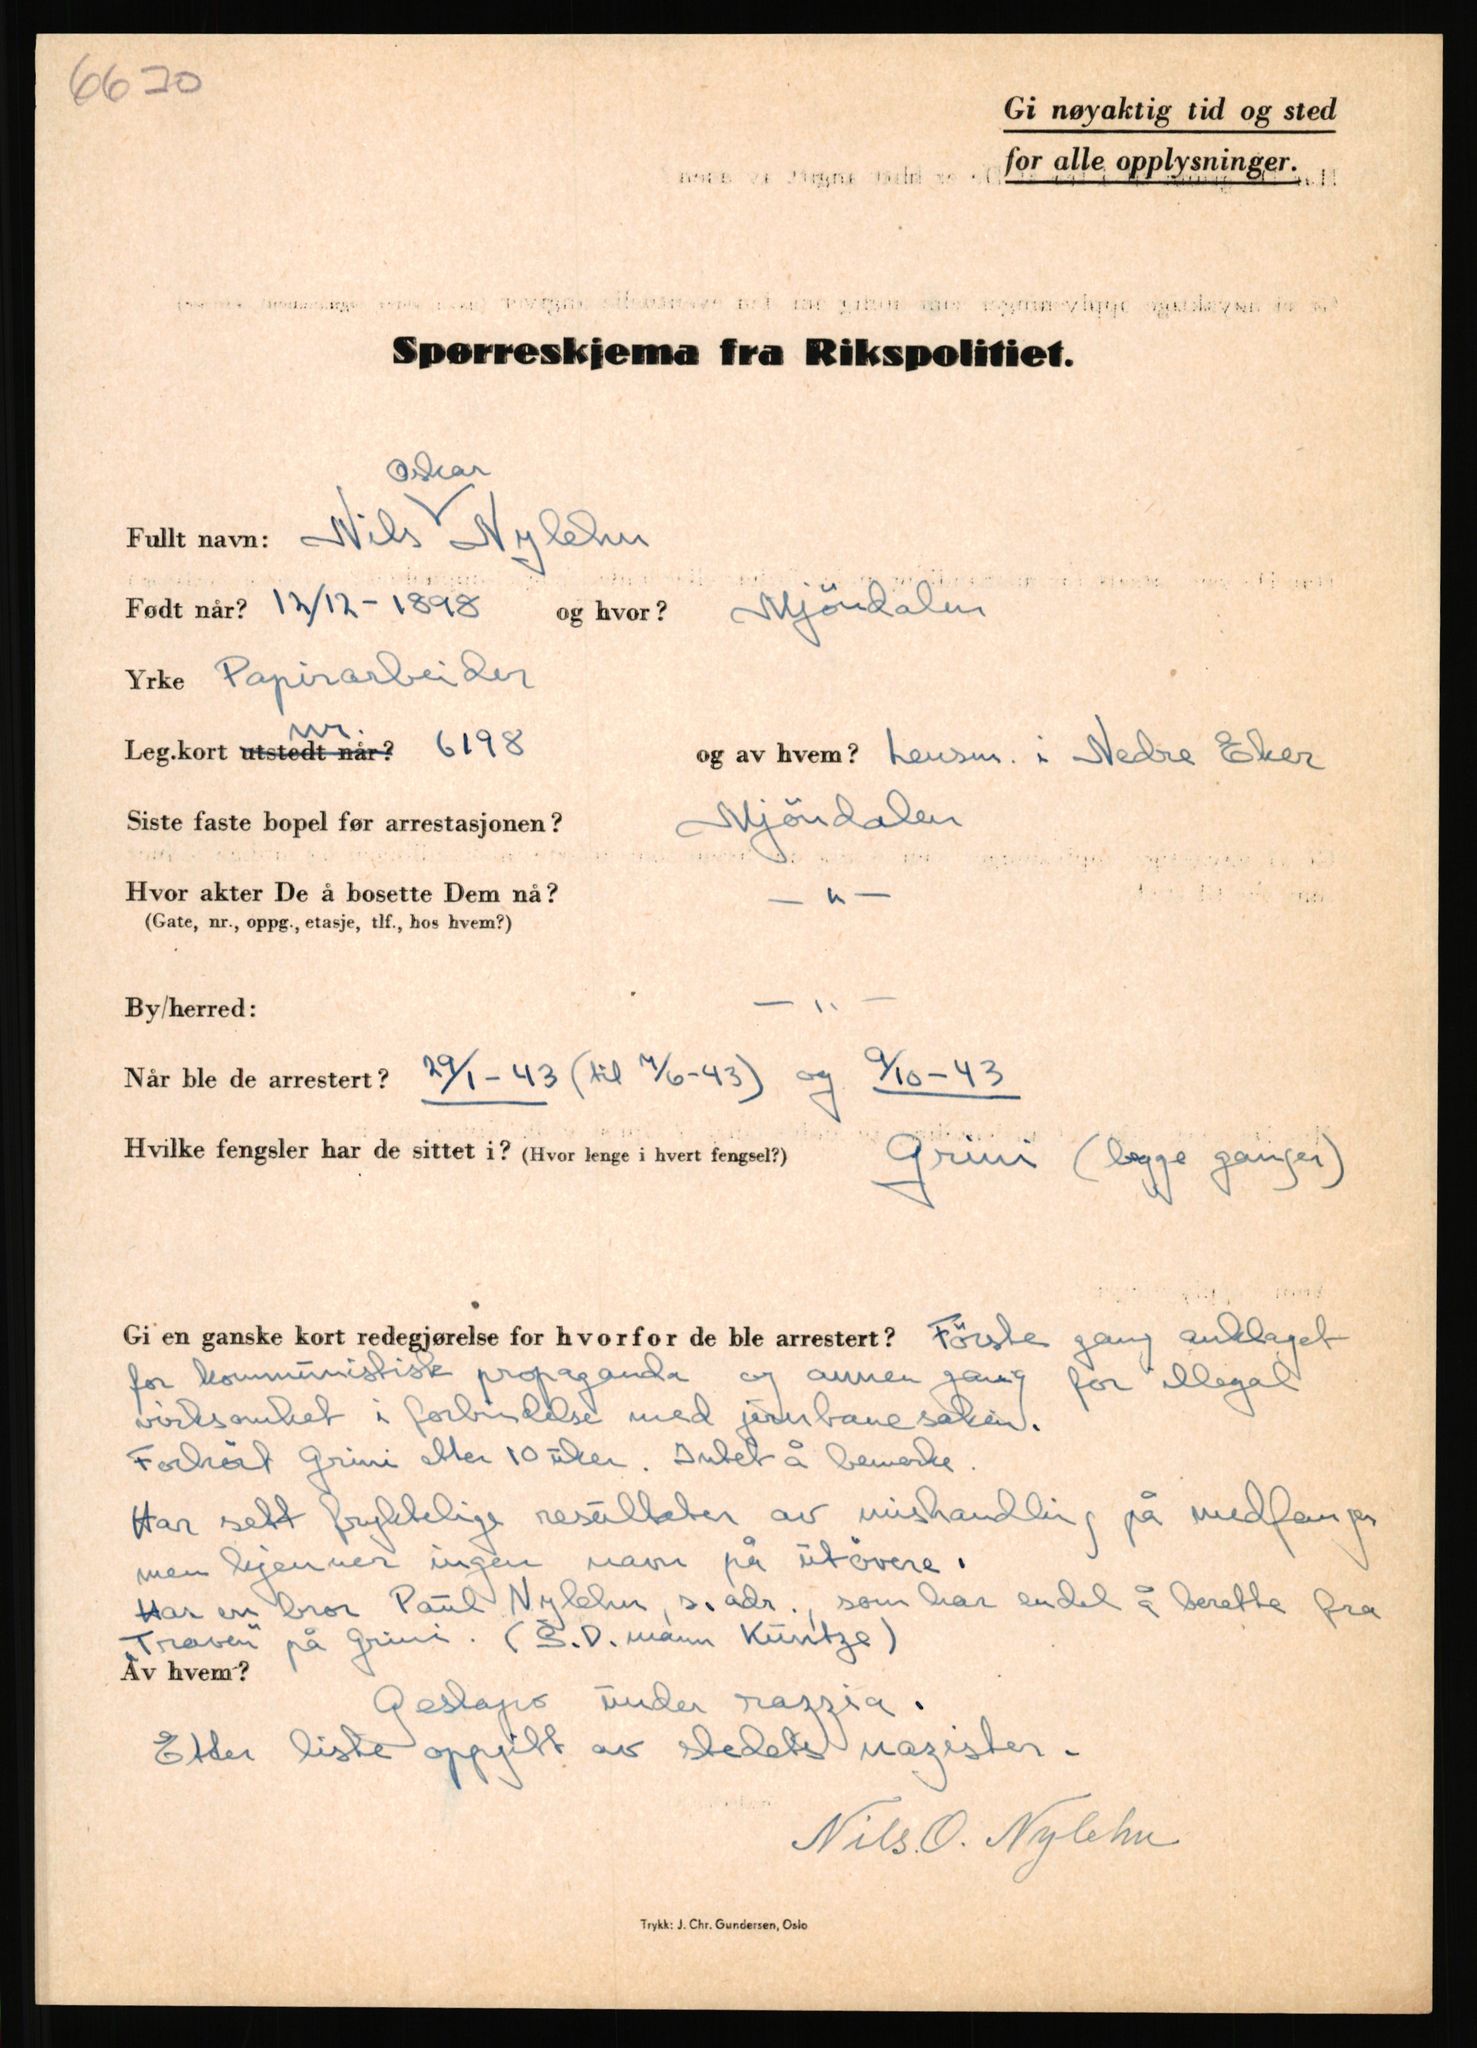 6620
Gi nøyaktig tid og sted
for alle opplysninger.
Spørreskjema fra Rikspolitiet.
Oskar
Fullt navn: Nils Nylehn
Født når? 12/12-1898 og hvor? Mjöndalen
Yrke Papirarbeider
nr.
Leg.kort utstedt når? 6198 og av hvem? Lensm. i Nedre Eker
Siste faste bopel før arrestasjonen? Mjöndalen
Hvor akter De å bosette Dem nå? — " —
(Gate, nr., oppg., etasje, tlf., hos hvem?)
By/herred: — " —
Når ble de arrestert? 29/1-43 (til 4/6-43) og 9/10-43
Hvilke fengsler har de sittet i? (Hvor lenge i hvert fengsel?) Grini (begge ganger)
Gi en ganske kort redegjørelse for hvorfor de ble arrestert? Förste gang anklaget
for kommunistisk propaganda og annen gang for illegal
virksomhet i forbindelse med jernbanesaken.
Forhört Grini etter 10 uker. Intet å bemerke.
Har sett fryktelige resultater av mishandling på medfanger
men kjenner ingen navn på utövere.
Har en bror Paul Nylehn, s. adr., som har endel å berette fra
"Traven" på Grini. (S.D. mann Kuntze)
Av hvem?
Gestapo under razzia.
Etter liste oppgitt av stedets nazister.
Nils. O. Nylehn
Trykk: J. Chr. Gundersen, Oslo